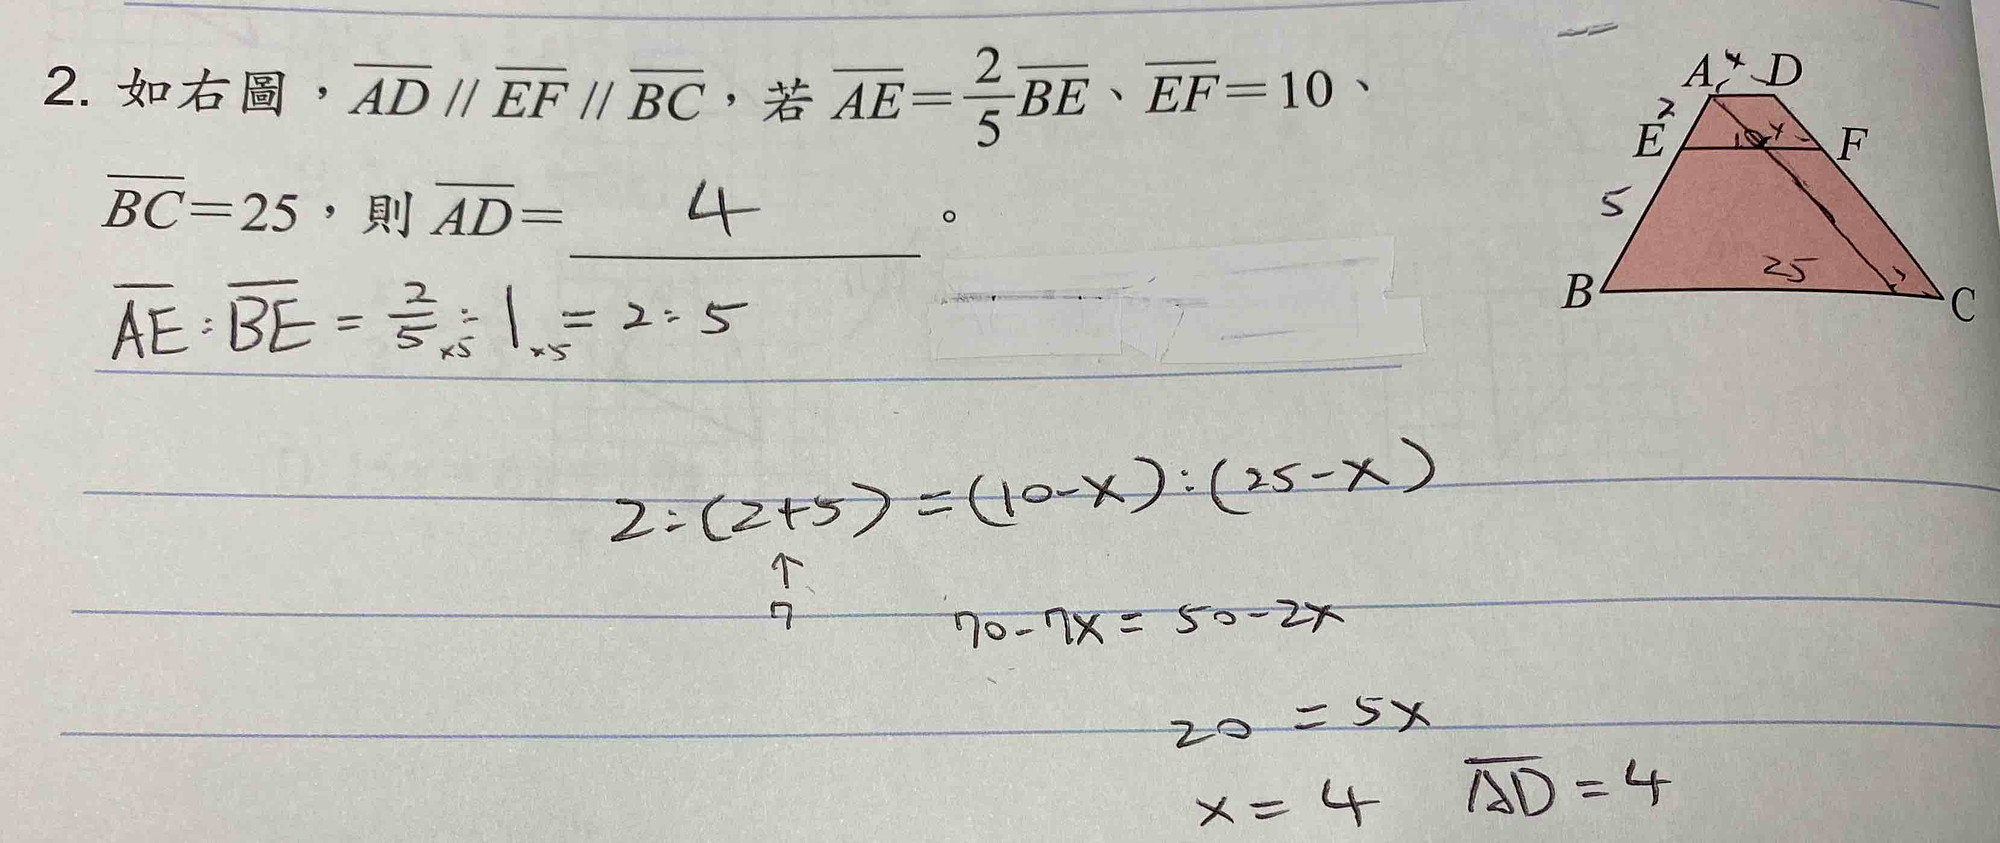 2. 如右圖，AD // EF // BC，若 AE=2/5BE、EF=10、
BC=25，則 AD= 4 。
AE:BE = 2/5 ×5 : 1 ×5 = 2:5
2:(2+5)=(10-x):(25-x)
↑
7
70-7x=50-2x
20=5x
x=4 AD=4
A x D
2
E 10 x F
5
25
B C